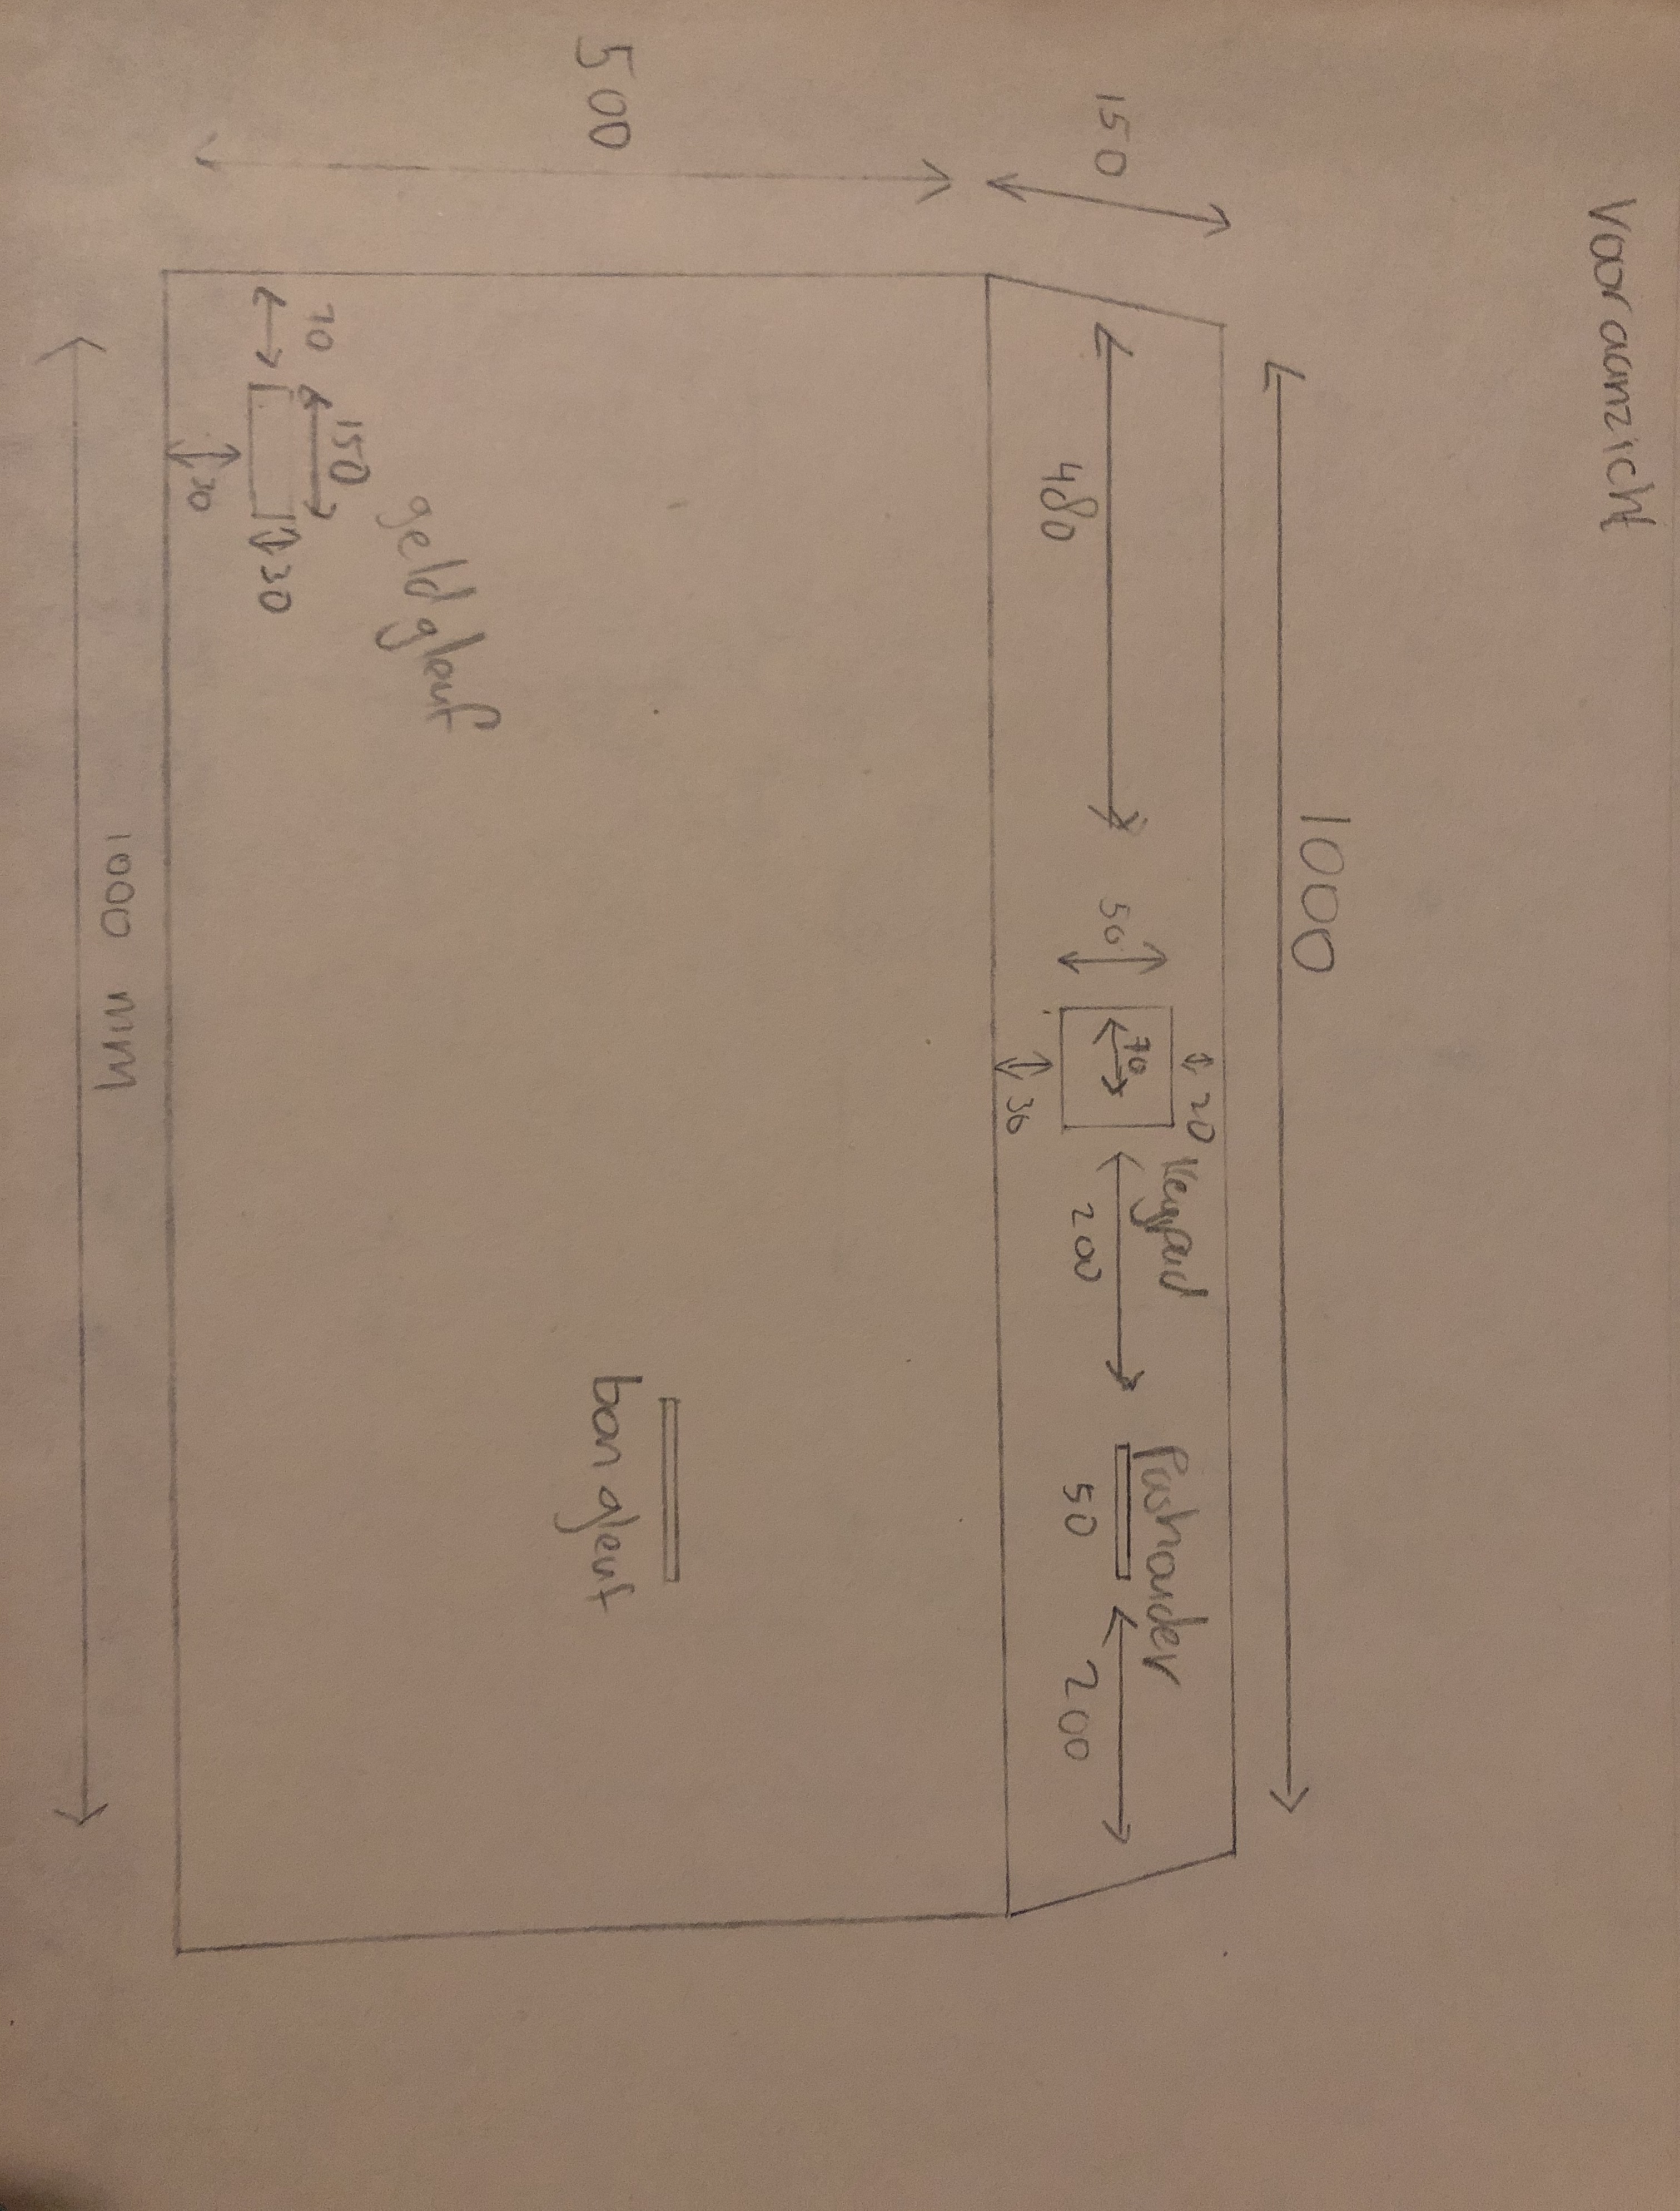 Vooraanzicht
1000
150
20
480
50
70
Keypad
200
Pashouder
50
200
30
500
bon gleuf
geld gleuf
70
150
30
30
1000 mm